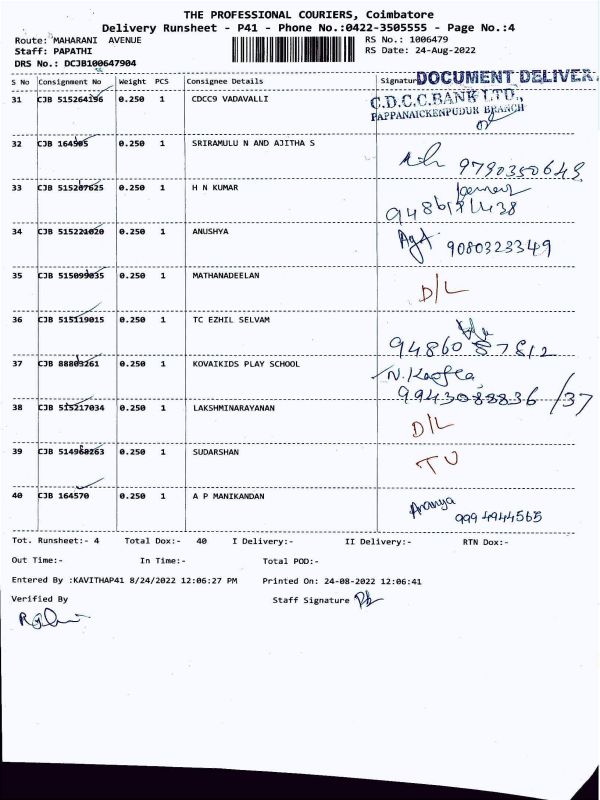 THE PROFESSIONAL COURIERS, Coimbatore
Delivery Runsheet - P41 - Phone No.:0422-3505555 - Page No.:4
Route: MAHARANI AVENUE RS No.: 1006479
Staff: PAPATHI RS Date: 24-Aug-2022
DRS No.: DCJB100647904
S No Consignment No Weight PCS Consignee Details Signatur DOCUMENT DELIVER
31 CJB 515264196 0.250 1 CDCC9 VADAVALLI C.D.C.C.BANK LTD.,
PAPPANAICKENPUDUR BRANCH
32 CJB 164505 0.250 1 SRIRAMULU N AND AJITHA S
9790350649
33 CJB 515207625 0.250 1 H N KUMAR
34 CJB 515221020 0.250 1 ANUSHYA 9080323349
35 CJB 515099035 0.250 1 MATHANADEELAN D/L
36 CJB 515119015 0.250 1 TC EZHIL SELVAM
94860 87812
37 CJB 88803261 0.250 1 KOVAIKIDS PLAY SCHOOL
9943088836 /37
38 CJB 515217034 0.250 1 LAKSHMINARAYANAN D/L
39 CJB 514968263 0.250 1 SUDARSHAN TU
40 CJB 164570 0.250 1 A P MANIKANDAN Aranya
9994944565
Tot. Runsheet:- 4 Total Dox:- 40 I Delivery:- II Delivery:- RTN Dox:-
Out Time:- In Time:- Total POD:-
Entered By :KAVITHAP41 8/24/2022 12:06:27 PM Printed On: 24-08-2022 12:06:41
Verified By Staff Signature